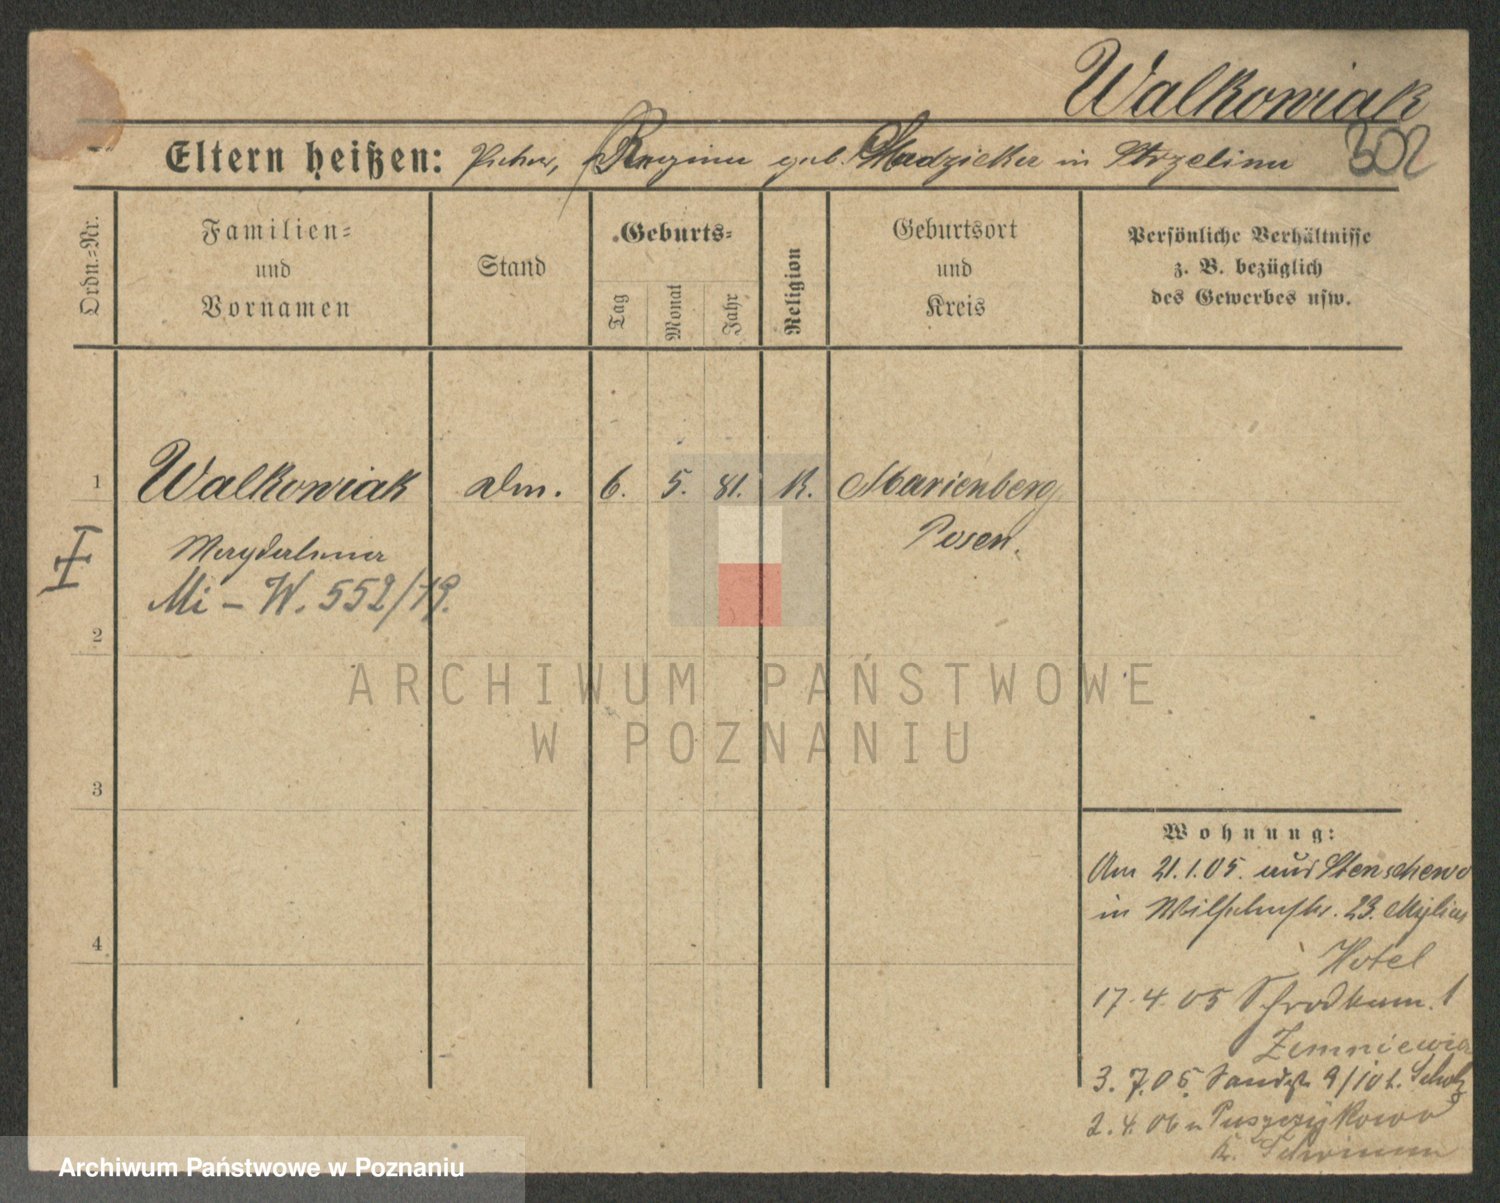 Walkowiak
302
Eltern heißen: Regina geb. Stadzieka in Strzelinu
Ordn.=Nr.
Familien=
und
Vornamen
Stand
Geburts=
Tag
Monat
Jahr
Religion
Geburtsort
und
Kreis
Persönliche Verhältnisse
z. B. bezüglich
des Gewerbes usw.
1 Walkowiak 6. 5. 81. K. Marienberg
Magdalena Posen.
Mi – W. 552/19.
2
ARCHIWUM PAŃSTWOWE
W POZNANIU
3
Wohnung:
Am 21.1.05. aus Stenschewo
in 23. Mylius
Hotel
4
17.4.05 1
3.7.05. 9/10
2.4.06 n Puszczykowo
Archiwum Państwowe w Poznaniu